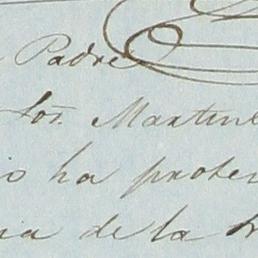 Padre
Sor. Martine
io ha prote
ia de la